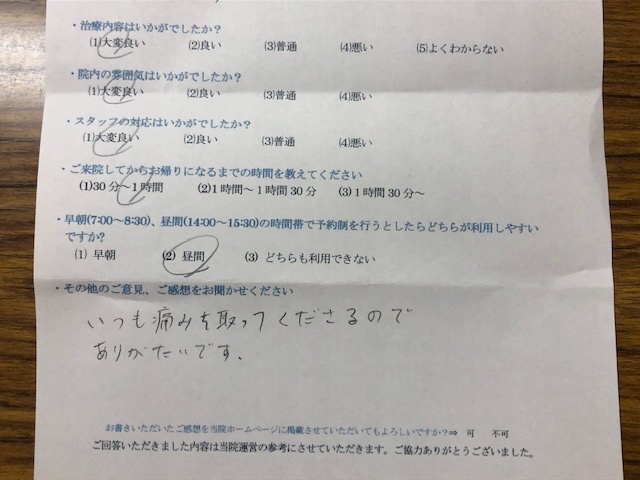 ・治療内容はいかがでしたか?
(1)大変良い (2)良い (3)普通 (4)悪い (5)よくわからない
・院内の雰囲気はいかがでしたか?
(1)大変良い (2)良い (3)普通 (4)悪い
・スタッフの対応はいかがでしたか?
(1)大変良い (2)良い (3)普通 (4)悪い
・ご来院してからお帰りになるまでの時間を教えてください
(1)30分～1時間 (2)1時間～1時間30分 (3)1時間30分～
・早朝(7:00～8:30)、昼間(14:00～15:30)の時間帯で予約制を行うとしたらどちらが利用しやすい
ですか?
(1) 早朝 (2) 昼間 (3) どちらも利用できない
・その他のご意見、ご感想をお聞かせください
いつも痛みを取ってくださるので
ありがたいです。
お書きいただいたご感想を当院ホームページに掲載させていただいてもよろしいですか?⇒ 可 不可
ご回答いただきました内容は当院運営の参考にさせていただきます。ご協力ありがとうございました。